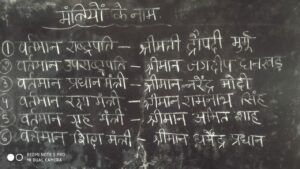 मंत्रियों के नाम
① वर्तमान राष्ट्रपति – श्रीमती द्रौपदी मुर्मू
② वर्तमान उपराष्ट्रपति – श्रीमान जगदीप धनखड़
③ वर्तमान प्रधान मंत्री – श्रीमान नरेंद्र मोदी
④ वर्तमान रक्षा मंत्री – श्रीमान राजनाथ सिंह
⑤ वर्तमान गृह मंत्री – श्रीमान अमित शाह
⑥ वर्तमान शिक्षा मंत्री – श्रीमान धर्मेंद्र प्रधान
REDMI NOTE 5 PRO
MI DUAL CAMERA